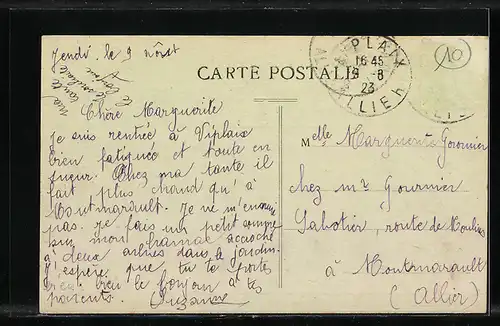 Jeudi le 9 Août
CARTE POSTALE
16 45
9 -8
23
ALLIER
10
Chère Marguerite
Je suis rentrée à Viplaix
bien fatiguée et toute en
Chez ma tante il
fait plus chaud qu'à
Montmarault. Je ne m'ennuie
pas. Je fais un petit
sur mon hamac accroché
à deux arbres dans le jardin.
J'espère que tu te portes
bien le bonjour à tes
parents. Suzanne
Melle Marguerite Gournier
chez Mr Gournier
Sabotier, route de Moulins
à Montmarault
(Allier)